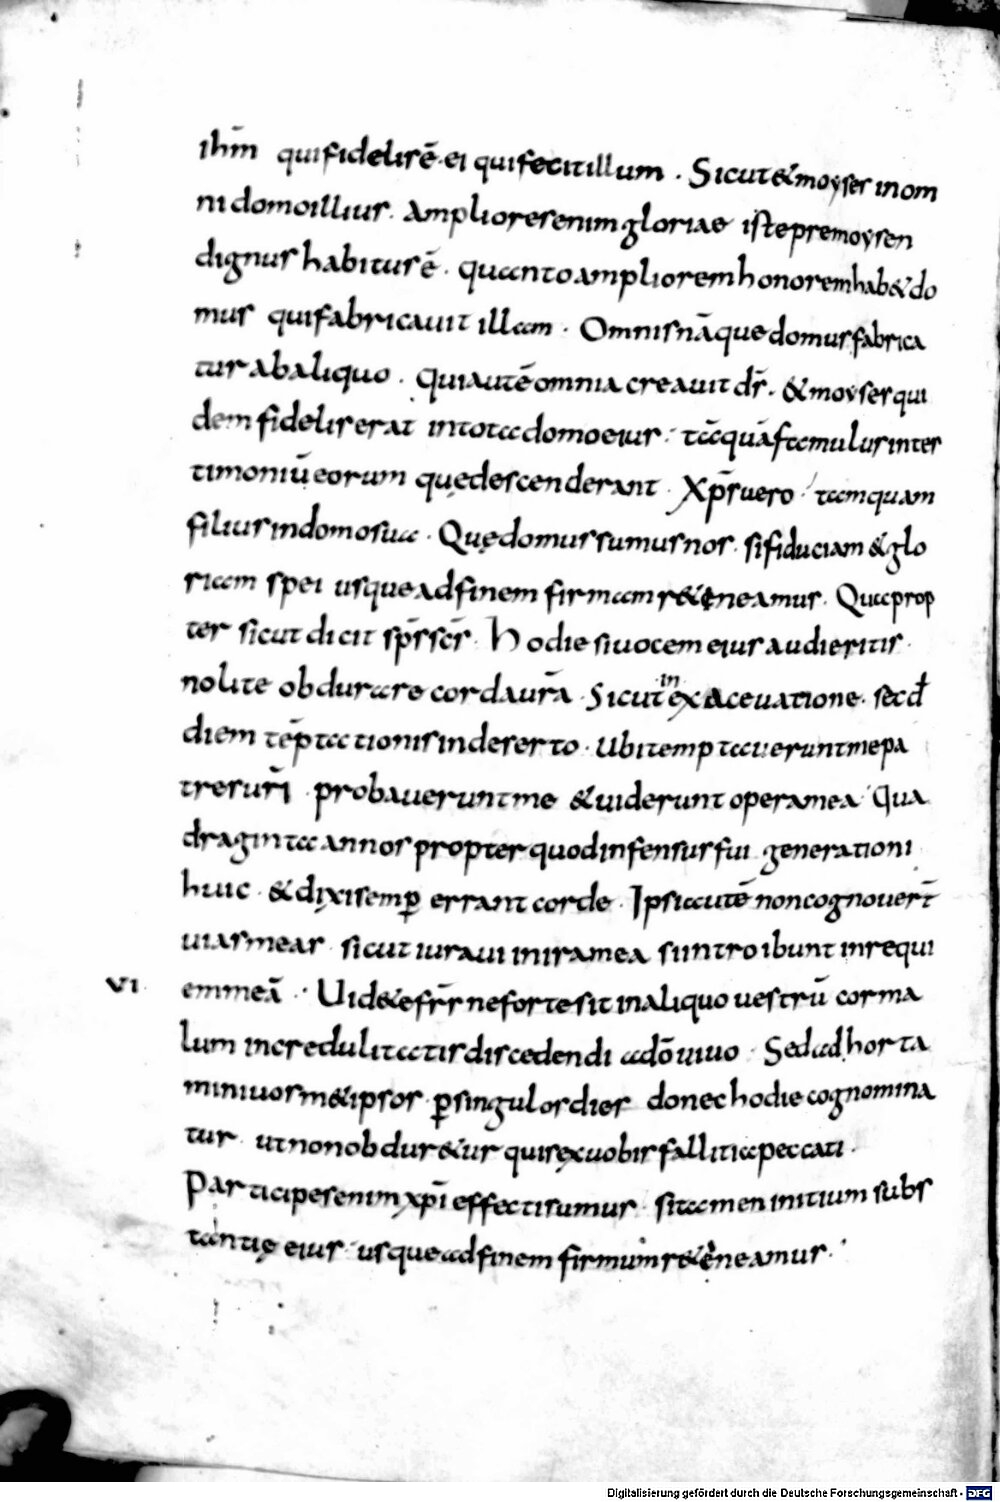 ihm̄ qui fidelis ē ei qui fecit illum . Sicut & moyses in om
ni domo illius . Amplioris enim gloriae iste pre moysen
dignus habitus ē . quanto ampliorem honorem hab& do
mus qui fabricauit illam . Omnis nāque domus fabrica
tur ab aliquo . qui autē omnia creauit dr̄ . & moyses qui
dem fidelis erat in tota domo eius . tāquā famulus in tes
timoniū eorum quę descenderant . Xpr̄ uero tamquam
filius in domo sua . Quę domus sumus nos . si fiduciam & glo
riam spei usque ad finem firmam r&ęneamus . Quaprop
ter sicut dicit sp̄s sc̄s . Hodie si uocem eius audieritis .
nolite obdurare corda ur̄a . Sicut in exaceuatione . secd̄
diem tēptationis in deserto . Ubi temptauerunt me pa
tres ur̄i . probauerunt me & uiderunt opera mea Qua
draginta annos propter quod infensus fui generationi
huic . & dixi semp̄ errant corde . Ipsi autē non cognouer̄t
uias meas . sicut iuraui in ira mea si introibunt in requi
VI . em meā . Uid&e fr̄s ne forte sit in aliquo uestrū cor ma
lum incredulitatis discedendi a dō uiuo . Sed adhorta
mini uos m&ipsos . p̄ singulos dies donec hodie cognomina
tur . ut non obdur&ur quis ex uobis fallitia peccati .
Participes enim xpī effecti sumus . si tamen initium subs
tantię eius . usque ad finem firmum r&ęneamus .
Digitalisierung gefördert durch die Deutsche Forschungsgemeinschaft - DFG